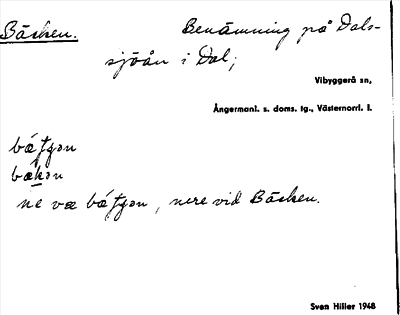 Bäcken. Benämning på Dals-
sjöån i Dal;
Vibyggerå sn,
Ångermanl. s. doms. tg., Västernorrl. l.
bækən
ne væ, nere vid Bäcken.
Sven Hiller 1948